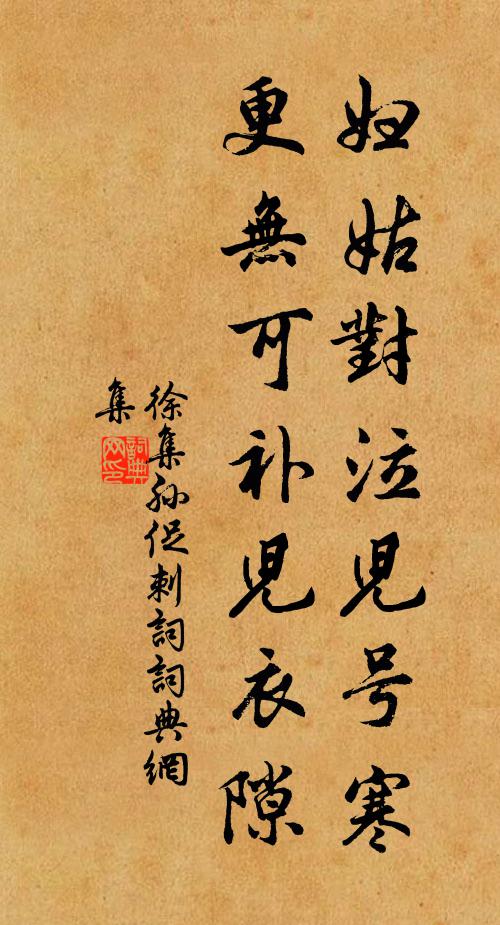 妇姑對泣児号寒
更無可补児衣隙
徐集孙促刺詞詞典網
集